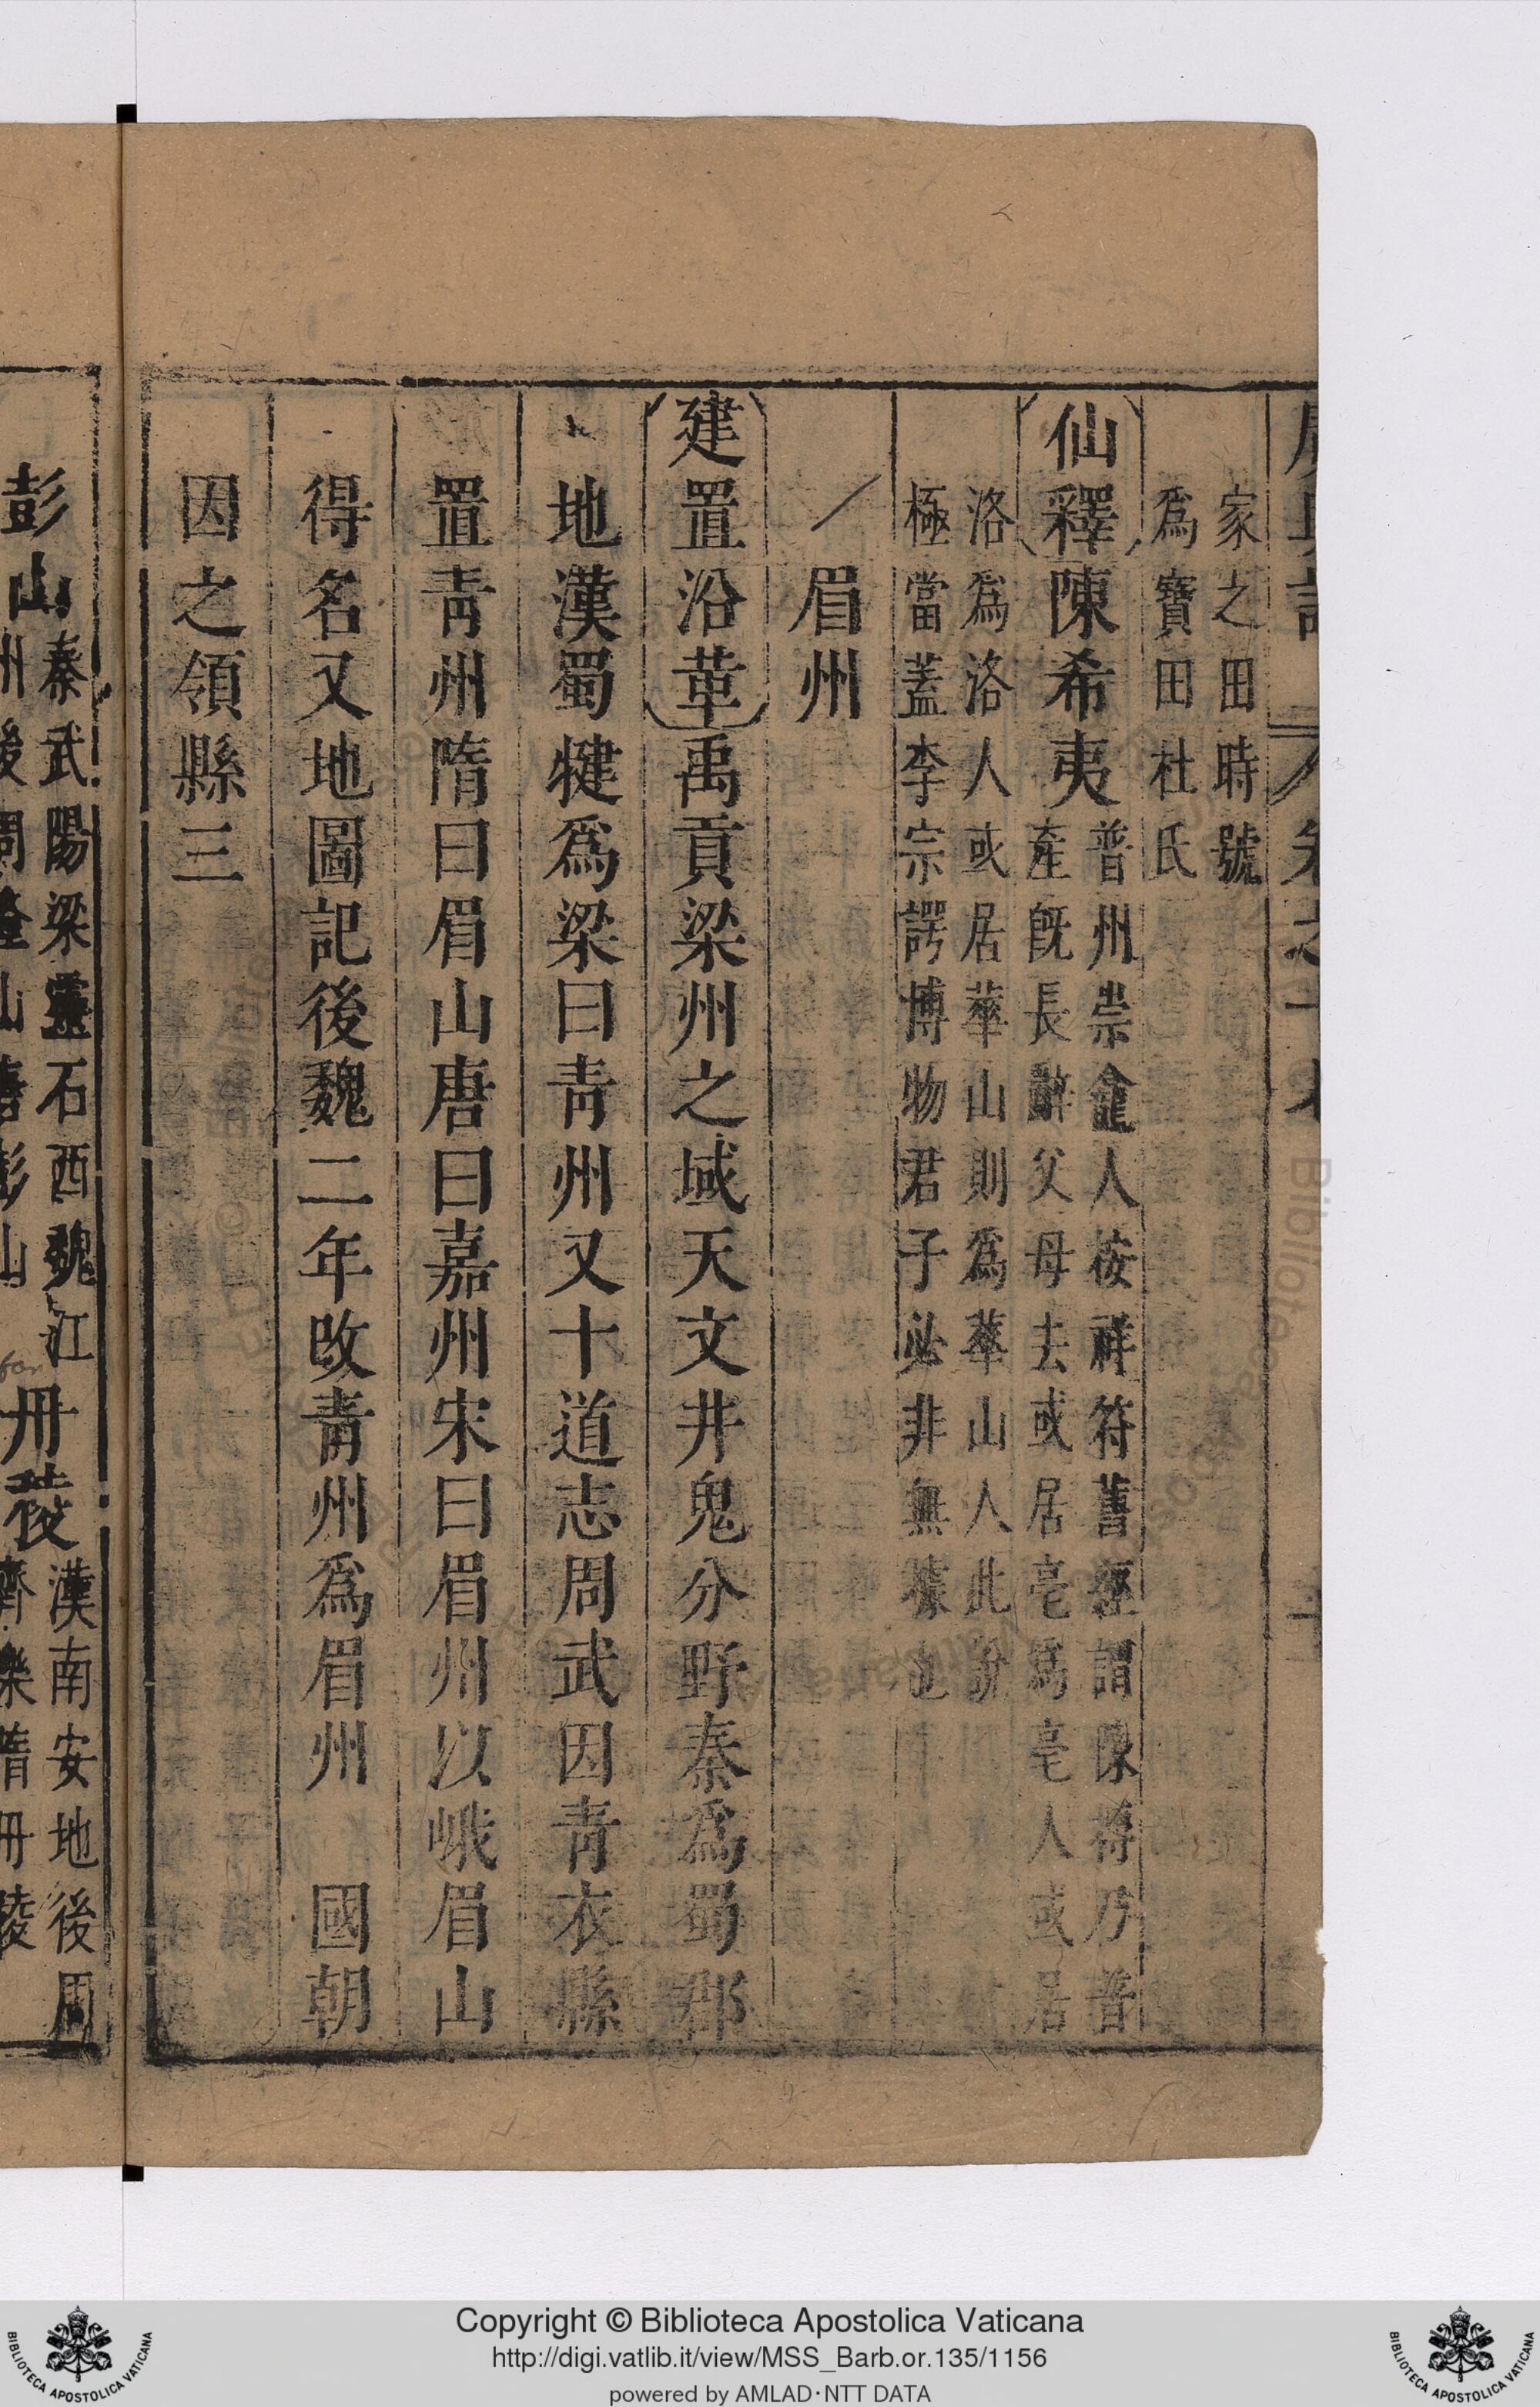 家之田時號
爲寶田杜氏
仙釋陳希夷
普州崇龕人按祥符舊經謂陳摶乃普
產旣長辭父母去或居亳爲亳人或居
洛爲洛人或居華山則爲華山人此說
極當蓋李宗諤博物君子必非無據也
眉州
建置沿革禹貢梁州之域天文井鬼分野秦爲蜀郡
地漢蜀犍爲梁曰青州又十道志周武因青衣縣
置青州隋曰眉山唐曰嘉州宋曰眉州以峨眉山
得名又地圖記後魏二年改青州爲眉州 國朝
因之領縣三
彭山
秦武陽梁靈石西魏江
州後周隆山唐彭山
丹稜
漢南安地後周
齊樂隋丹稜
Copyright © Biblioteca Apostolica Vaticana
http://digi.vatlib.it/view/MSS_Barb.or.135/1156
powered by AMLAD·NTT DATA
BIBLIOTECA APOSTOLICA VATICANA
BIBLIOTECA APOSTOLICA VATICANA